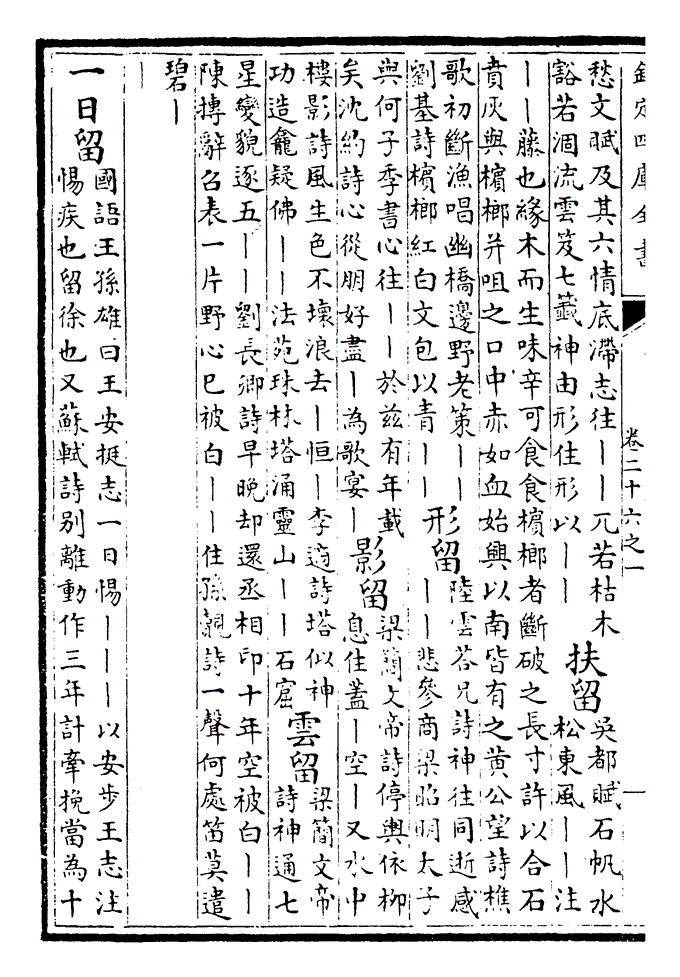 欽定四庫全書
卷二十六之一
一
愁文賦及其六情底滯志往丨丨兀若枯木
豁若涸流雲笈七籤神由形住形以丨丨
扶留
吳都賦石帆水
松東風丨丨注
丨丨藤也緣木而生味辛可食食檳榔者斷破之長寸許以合石
賁灰與檳榔并咀之口中赤如血始興以南皆有之黄公望詩樵
歌初斷漁唱幽橋邊野老策丨丨
劉基詩檳榔紅白文包以青丨丨
形留
陸雲荅兄詩神往同逝感
丨丨悲參商梁昭明太子
與何子季書心往丨丨於兹有年載
矣沈約詩心從朋好盡丨為歌宴丨
影留
梁簡文帝詩停輿依柳
息住蓋丨空丨又水中
樓影詩風生色不壞浪去丨恒丨李適詩塔似神
功造龕疑佛丨丨法苑珠林塔涌靈山丨丨石窟
雲留
梁簡文帝
詩神通七
星變貌逐五丨丨劉長卿詩早晚却還丞相印十年空被白丨丨
陳摶辭召表一片野心已被白丨丨住孫覿詩一聲何處笛莫遣
碧丨
丨
一日留
國語王孫雄曰王安挺志一日惕丨丨丨以安步王志注
惕疾也留徐也又蘇軾詩别離動作三年計牽挽當為十